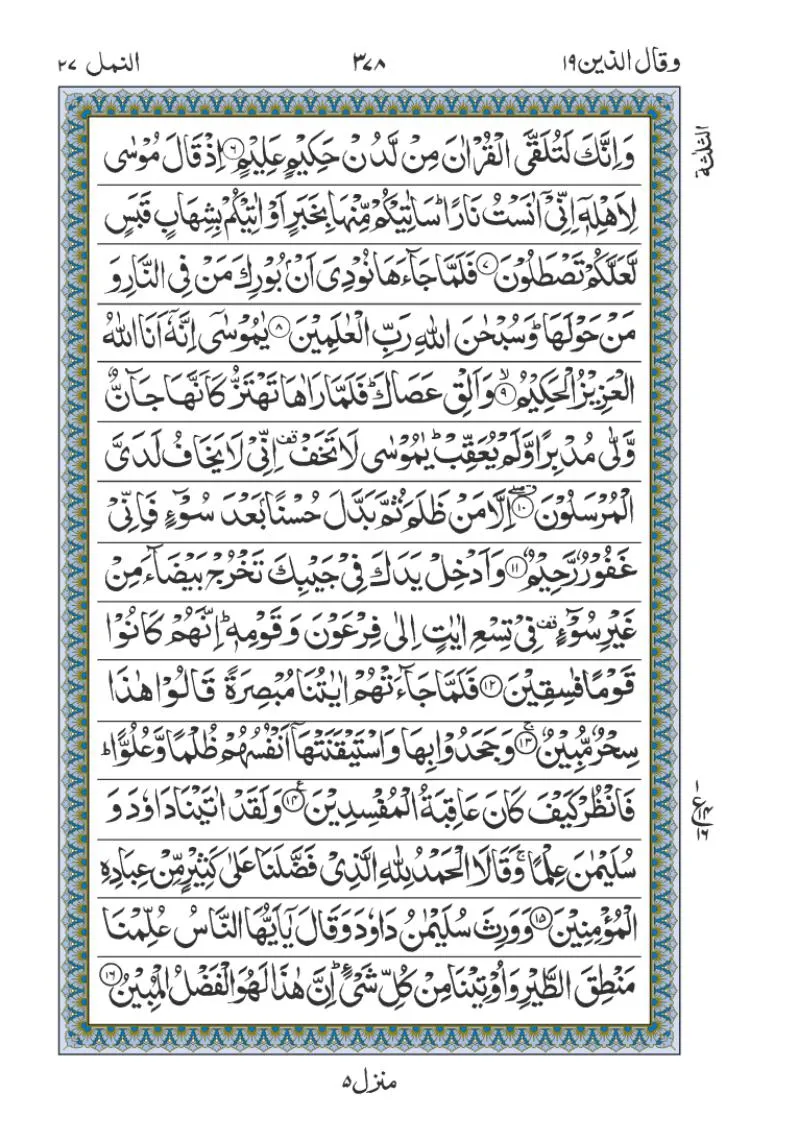 وقال الذين ١٩ ٣٧٨ النمل ٢٧
الثلٰثة
وَاِنَّكَ لَتُلَقَّى الْقُرْاٰنَ مِنْ لَّدُنْ حَكِيْمٍ عَلِيْمٍ ۶ اِذْ قَالَ مُوْسٰى
لِاَهْلِهٖۤ اِنِّیْۤ اٰنَسْتُ نَارًاؕ سَاٰتِيْكُمْ مِّنْهَا بِخَبَرٍ اَوْ اٰتِيْكُمْ بِشِهَابٍ قَبَسٍ
لَّعَلَّكُمْ تَصْطَلُوْنَ ۷ فَلَمَّا جَآءَهَا نُوْدِیَ اَنْۢ بُوْرِكَ مَنْ فِی النَّارِ وَ
مَنْ حَوْلَهَاؕ وَسُبْحٰنَ اللّٰهِ رَبِّ الْعٰلَمِيْنَ ۸ يٰمُوْسٰۤى اِنَّهٗۤ اَنَا اللّٰهُ
الْعَزِيْزُ الْحَكِيْمُ ۙ۹ وَاَلْقِ عَصَاكَؕ فَلَمَّا رَاٰهَا تَهْتَزُّ كَاَنَّهَا جَآنٌّ
وَّلّٰى مُدْبِرًا وَّلَمْ يُعَقِّبْؕ يٰمُوْسٰى لَا تَخَفْ قف اِنِّیْ لَا يَخَافُ لَدَیَّ
الْمُرْسَلُوْنَ ۱۰ اِلَّا مَنْ ظَلَمَ ثُمَّ بَدَّلَ حُسْنًۢا بَعْدَ سُوْٓءٍ فَاِنِّیْ
غَفُوْرٌ رَّحِيْمٌ ۱۱ وَاَدْخِلْ يَدَكَ فِیْ جَيْبِكَ تَخْرُجْ بَيْضَآءَ مِنْ
غَيْرِ سُوْٓءٍ قف فِیْ تِسْعِ اٰيٰتٍ اِلٰى فِرْعَوْنَ وَقَوْمِهٖؕ اِنَّهُمْ كَانُوْا
قَوْمًا فٰسِقِيْنَ ۱۲ فَلَمَّا جَآءَتْهُمْ اٰيٰتُنَا مُبْصِرَةً قَالُوْا هٰذَا
سِحْرٌ مُّبِيْنٌ ۚ۱۳ وَجَحَدُوْا بِهَا وَاسْتَيْقَنَتْهَاۤ اَنْفُسُهُمْ ظُلْمًا وَّعُلُوًّاؕ
فَانْظُرْ كَيْفَ كَانَ عَاقِبَةُ الْمُفْسِدِيْنَ ۱۴ع وَلَقَدْ اٰتَيْنَا دَاوٗدَ وَ
ع ۱ ۱۴ ۱۶
سُلَيْمٰنَ عِلْمًاۚ وَقَالَا الْحَمْدُ لِلّٰهِ الَّذِیْ فَضَّلَنَا عَلٰى كَثِيْرٍ مِّنْ عِبَادِهِ
الْمُؤْمِنِيْنَ ۱۵ وَوَرِثَ سُلَيْمٰنُ دَاوٗدَ وَقَالَ يٰۤاَيُّهَا النَّاسُ عُلِّمْنَا
مَنْطِقَ الطَّيْرِ وَاُوْتِيْنَا مِنْ كُلِّ شَیْءٍؕ اِنَّ هٰذَا لَهُوَ الْفَضْلُ الْمُبِيْنُ ۱۶
منزل ۵